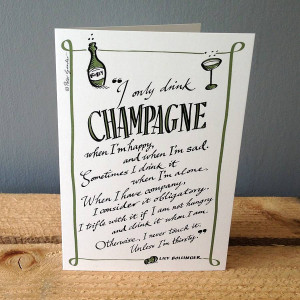 "I only drink
CHAMPAGNE
when I'm happy,
and when I'm sad.
Sometimes I drink it
when I'm alone.
When I have company,
I consider it obligatory.
I trifle with it if I am not hungry
and drink it when I am.
Otherwise, I never touch it.
Unless I'm thirsty."
LILY BOLLINGER